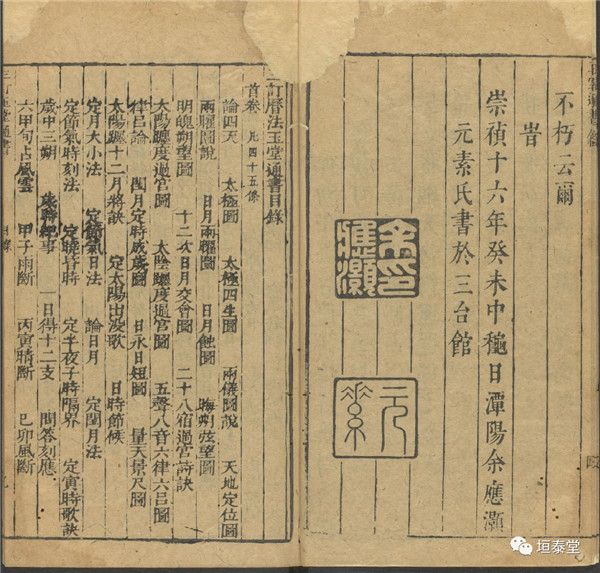 不朽云爾
旹
崇禎十六年癸未中龝日潭陽余應灝
元素氏書於三台館
余印應灝
元素
訂曆法玉堂通書目錄
首卷 凡四十五條
論四天 太極圖 太極四生圖 兩儀圖說 天地定位圖
兩曜圖說 日月兩曜圖 日月蝕圖 晦朔弦望圖
明魄朔望圖 十二次日月交會圖 二十八宿過宮詩訣
太陽躔度過宮圖 太陰躔度過宮圖 五聲八音六律六呂圖
律呂論 閏月定時成歲圖 日永日短圖 量天景尺圖
太陽躔十二月將訣 定太陽出没歌 日時節候
定月大小法 定節氣日法 論日月 定閏月法
定節氣時刻法 定曉昏時 定半夜子時隔界 定寅時歌訣
歲中三朔 事 一日得十二支 問答刻應
六甲句占風雲 甲子雨斷 丙寅晴斷 己卯風斷
訂玉堂通書
垣泰堂